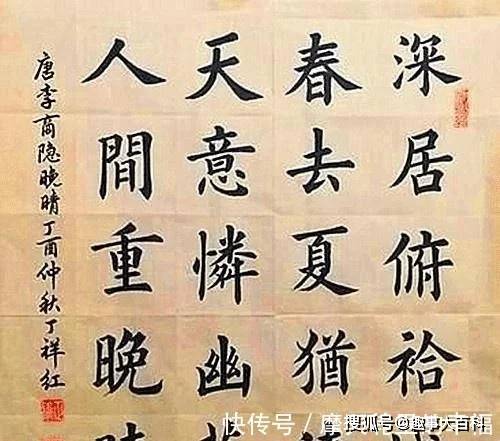 深居俯袷
春去夏猶
天意憐幽
人間重晚
唐李商隐晚晴丁酉仲秋丁祥红
快传号
搜狐号@趣事大百科